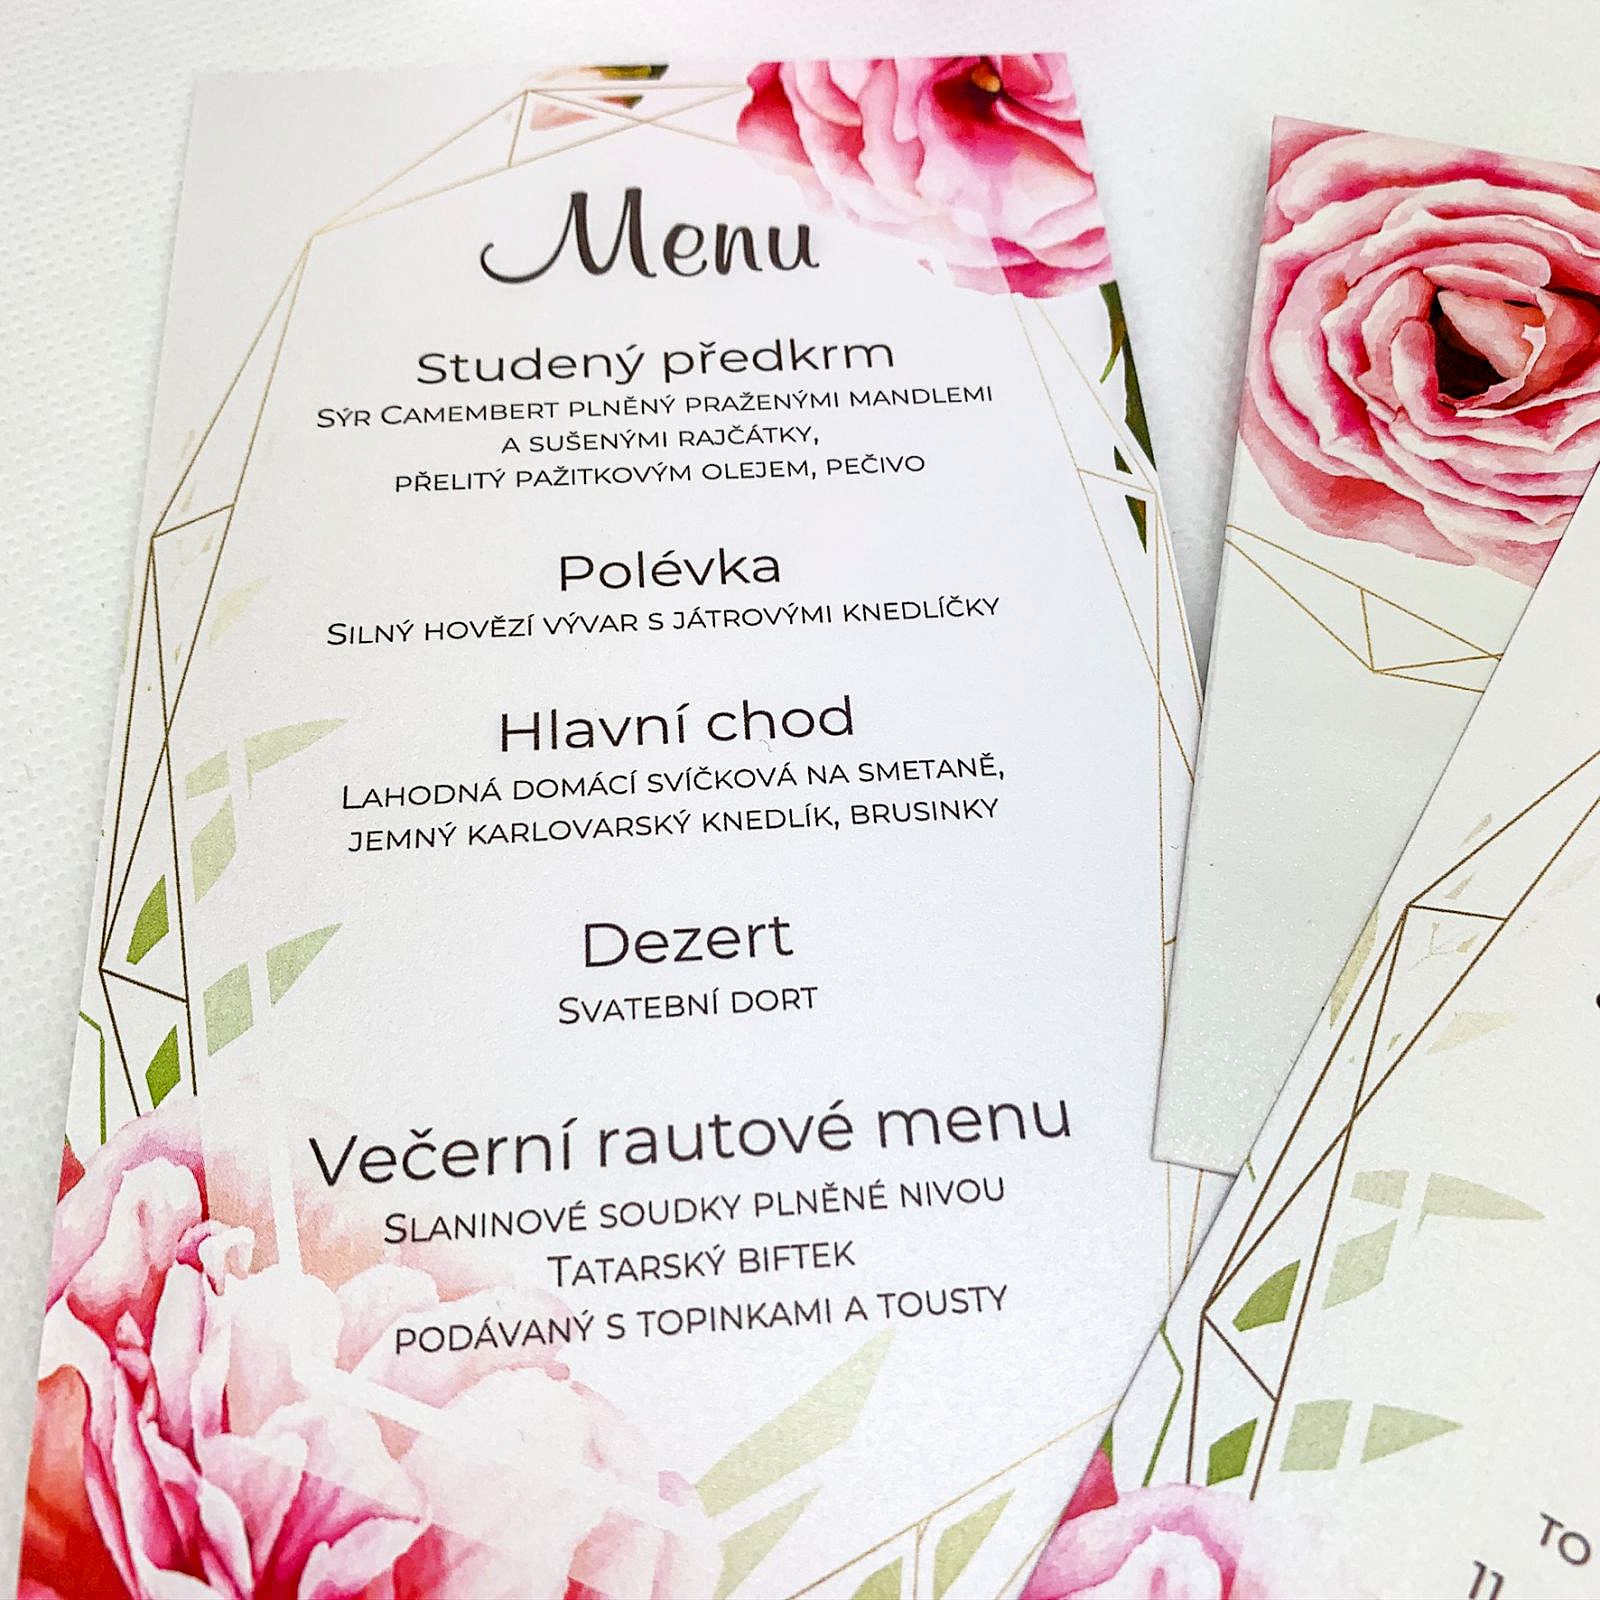 Menu
Studený předkrm
Sýr Camembert plněný praženými mandlemi
a sušenými rajčátky,
přelitý pažitkovým olejem, pečivo
Polévka
Silný hovězí vývar s játrovými knedlíčky
Hlavní chod
Lahodná domácí svíčková na smetaně,
jemný karlovarský knedlík, brusinky
Dezert
Svatební dort
Večerní rautové menu
Slaninové soudky plněné nivou
Tatarský biftek
podávaný s topinkami a tousty
TO
11